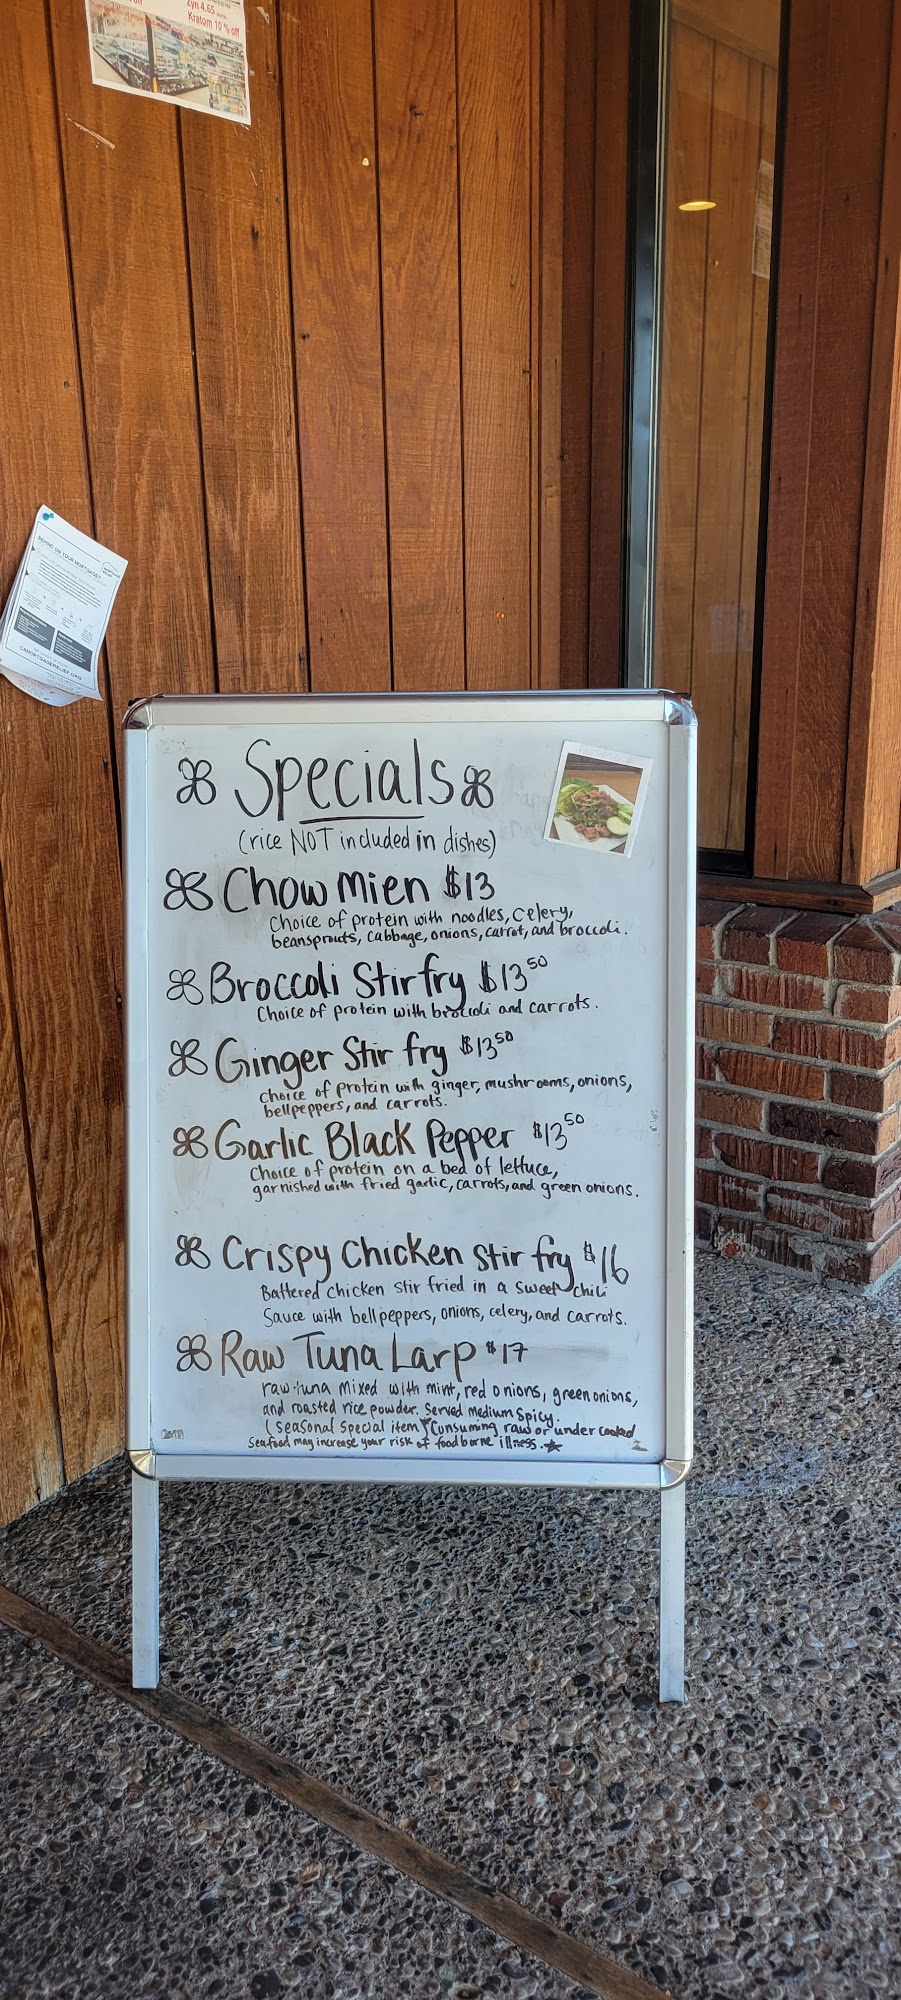 Zyn 4.65
Kratom 10 % off
BEHIND ON YOUR MORTGAGE?
CAMORTGAGERELIEF.ORG
Specials
(rice NOT included in dishes)
Chow Mien $13
Choice of protein with noodles, Celery,
beansprouts, Cabbage, onions, carrot, and broccoli.
Broccoli Stir fry $13 50
Choice of protein with broccoli and carrots.
Ginger Stir fry $13 50
choice of protein with ginger, mushrooms, onions,
bellpeppers, and carrots.
Garlic Black Pepper $13 50
Choice of protein on a bed of lettuce,
garnished with fried garlic, carrots, and green onions.
Crispy Chicken Stir fry $16
Battered chicken stir fried in a sweet chili
Sauce with bellpeppers, onions, celery, and carrots.
Raw Tuna Larp $17
raw tuna mixed with mint, red onions, green onions,
and roasted rice powder. Served medium spicy.
(seasonal special item * Consuming raw or under cooked
Seafood may increase your risk of food borne illness. *